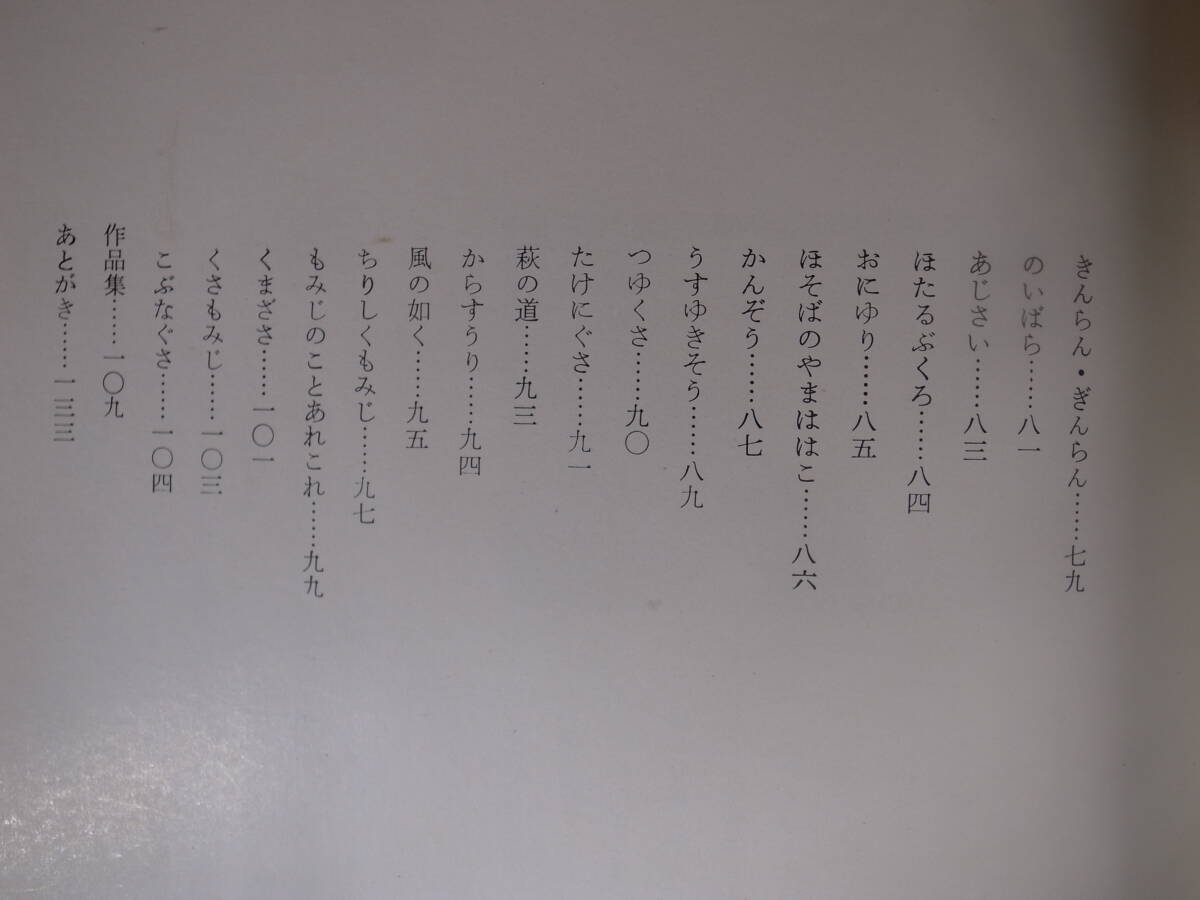 きんらん・ぎんらん……七九
のいばら……八一
あじさい……八三
ほたるぶくろ……八四
おにゆり……八五
ほそばのやまははこ……八六
かんぞう……八七
うすゆきそう……八九
つゆくさ……九〇
たけにぐさ……九一
萩の道……九三
からすうり……九四
風の如く……九五
ちりしくもみじ……九七
もみじのことあれこれ……九九
くまざさ……一〇一
くさもみじ……一〇三
こぶなぐさ……一〇四
作品集……一〇九
あとがき……一三三